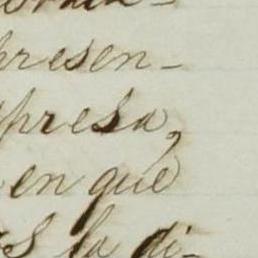 presen-
presa,
en que
la di-